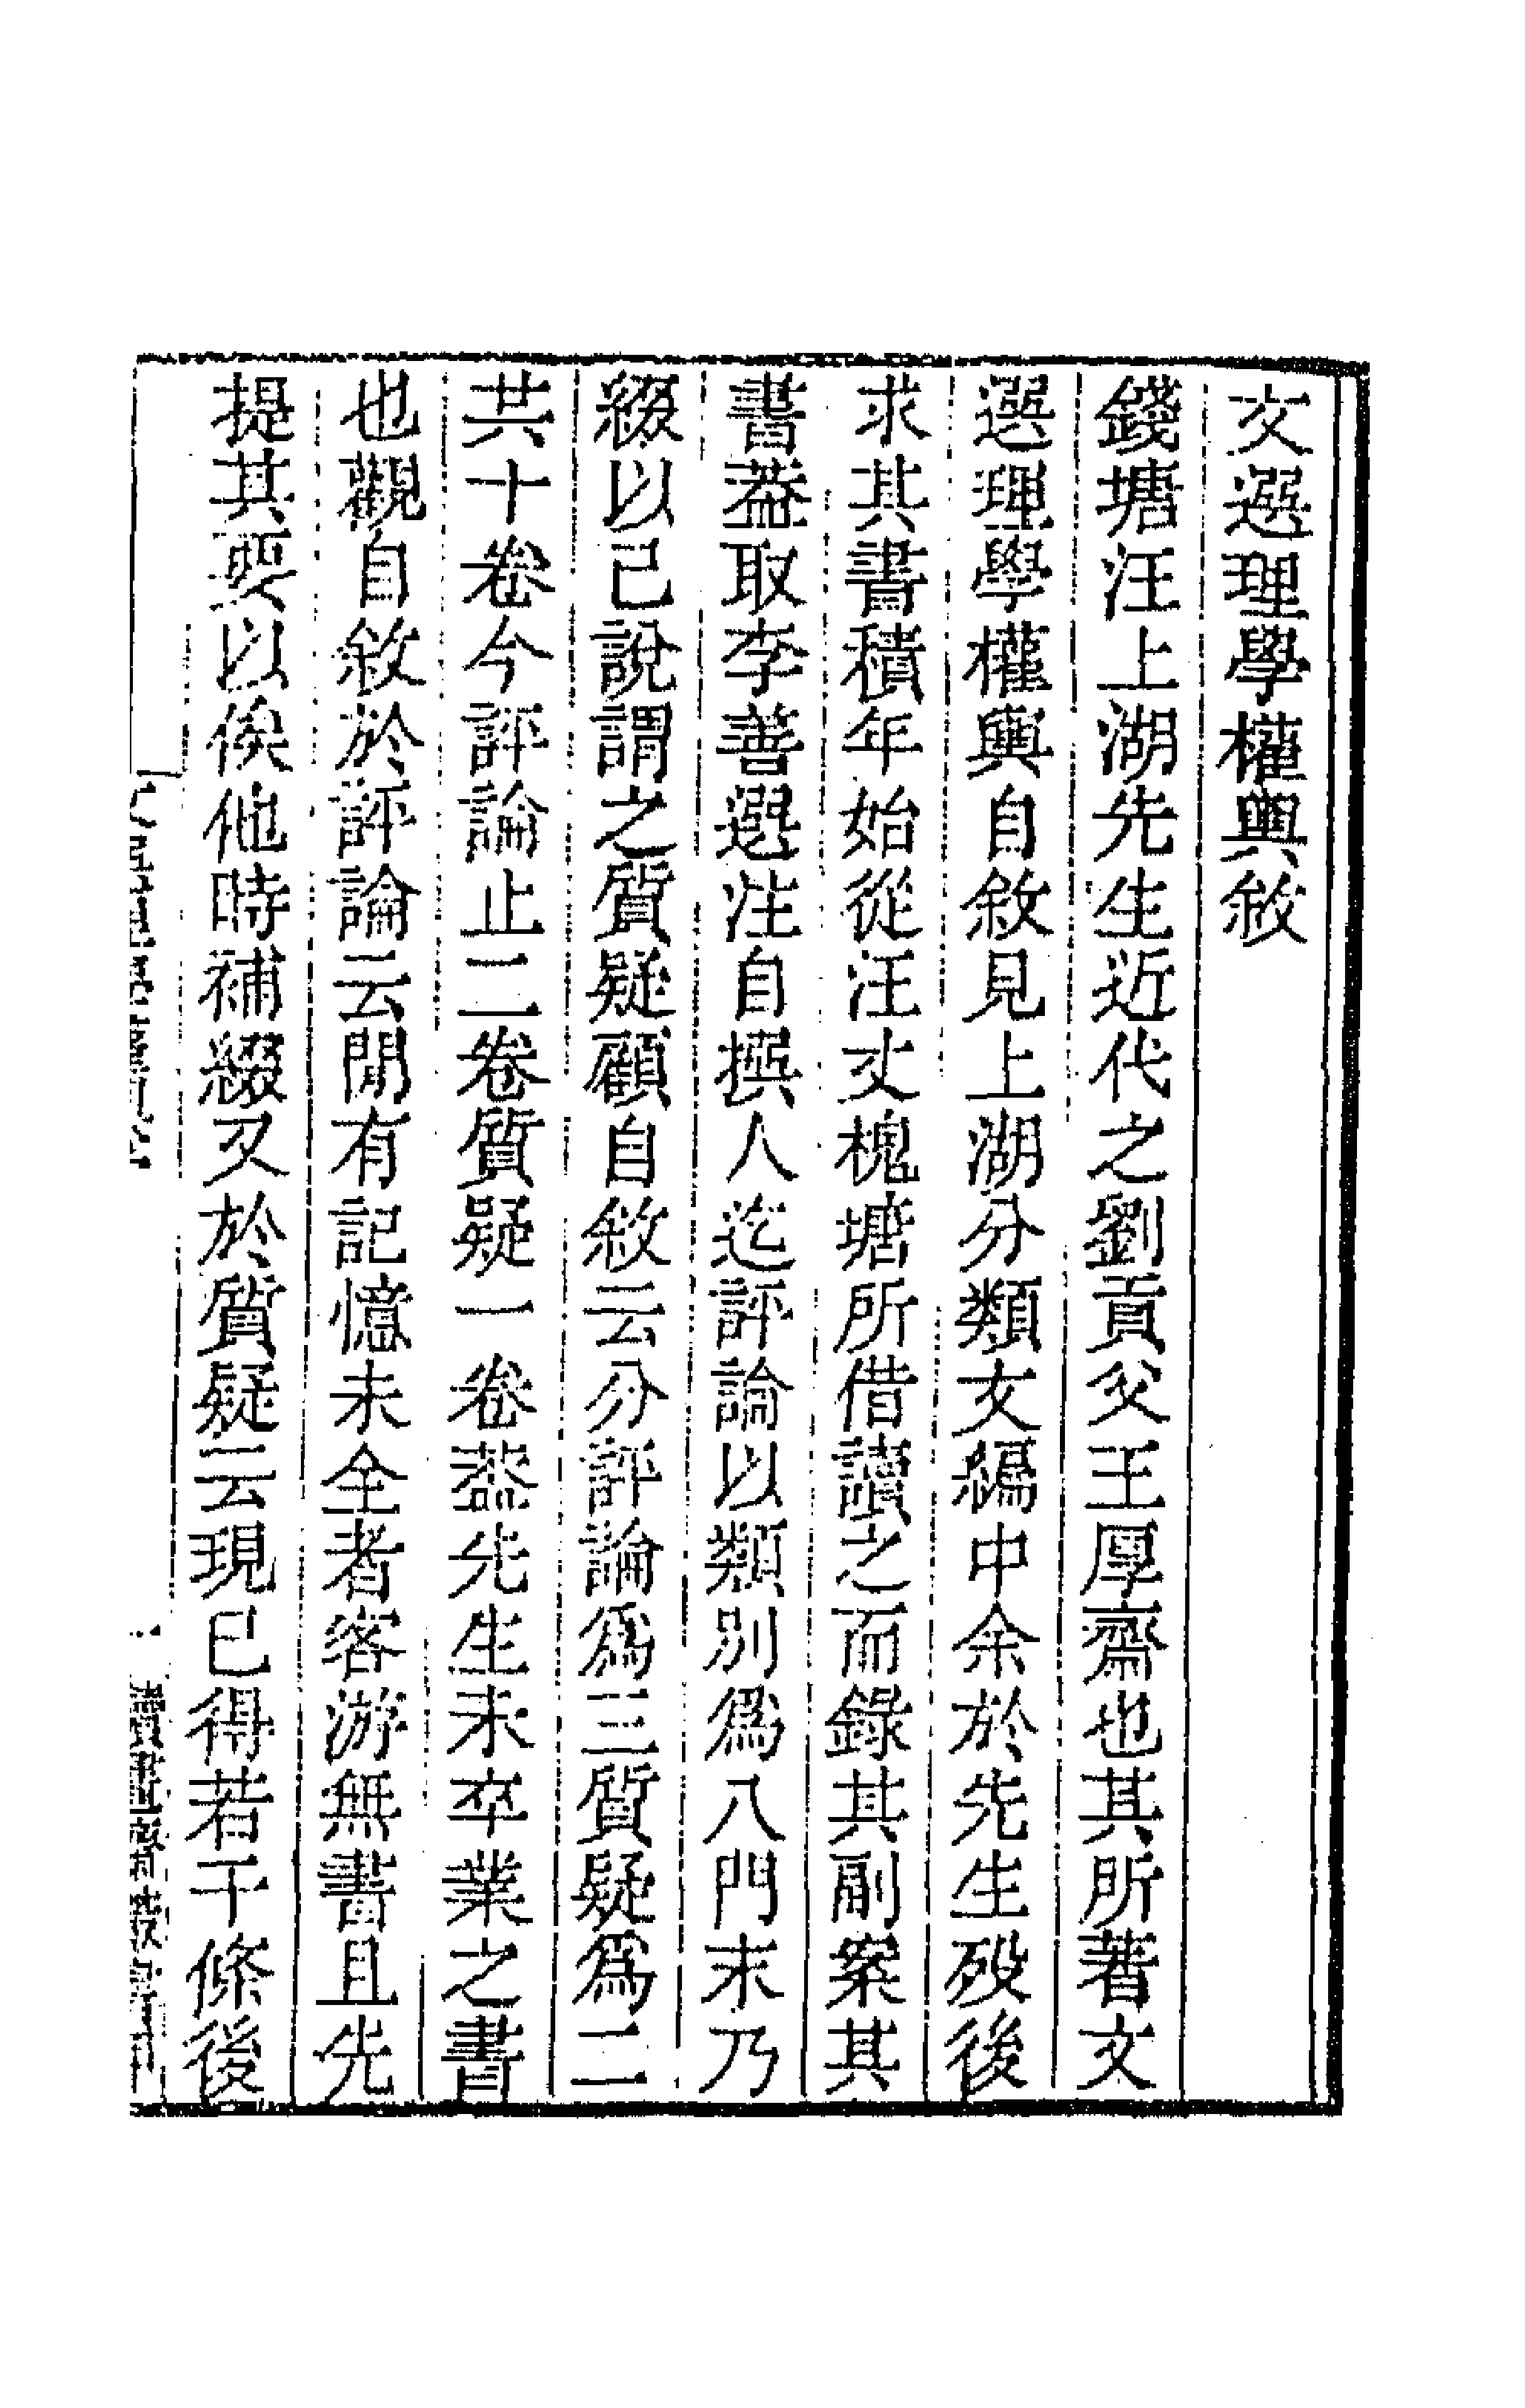 文選理學權輿敘
錢塘汪上湖先生近代之劉貢父王厚齋也其所著文
選理學權輿自敘見上湖分類文編中余於先生歿後
求其書積年始從汪丈槐塘所借讀之而錄其副案其
書葢取李善選注自撰人迄評論以類別為八門末乃
綴以己說謂之質疑顧自敘云分評論為三質疑為二
共十卷今評論止二卷質疑一卷葢先生未卒業之書
也觀自敘於評論云閒有記憶未全者客游無書且先
提其要以俟他時補綴又於質疑云現已得若干條後